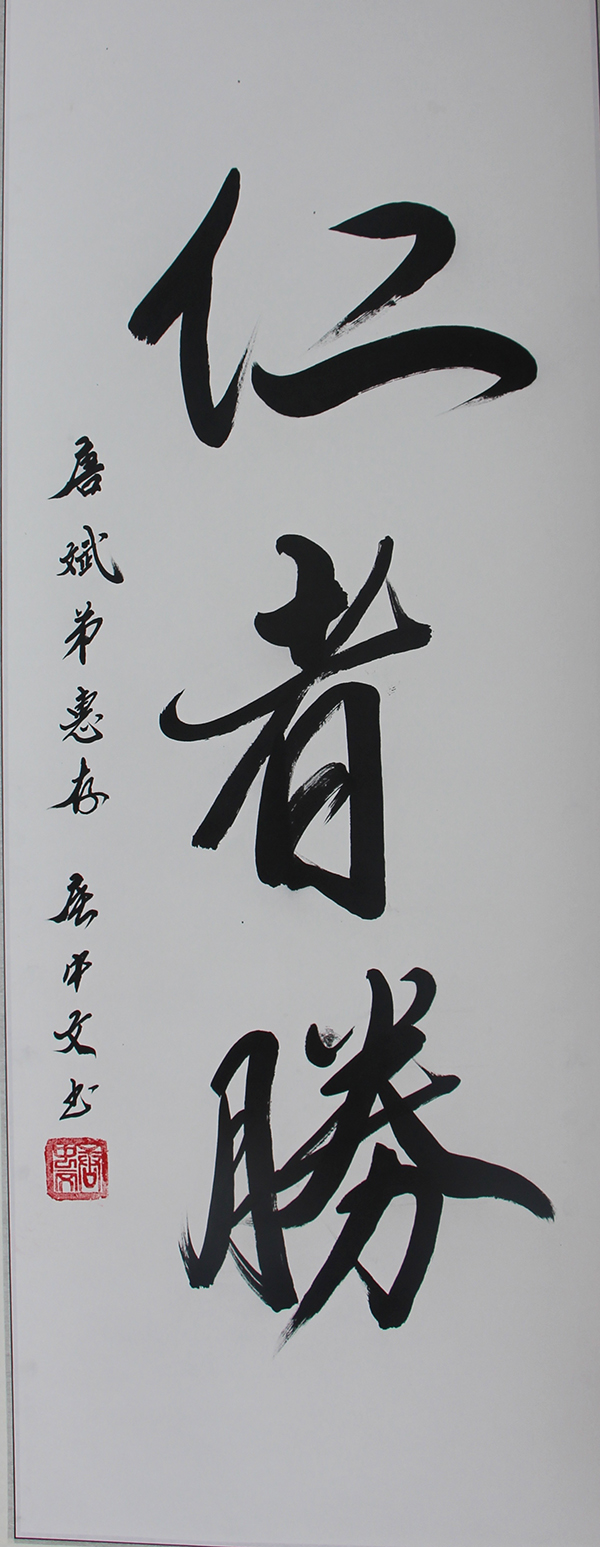 仁者勝
唐斌弟惠存 唐中文书